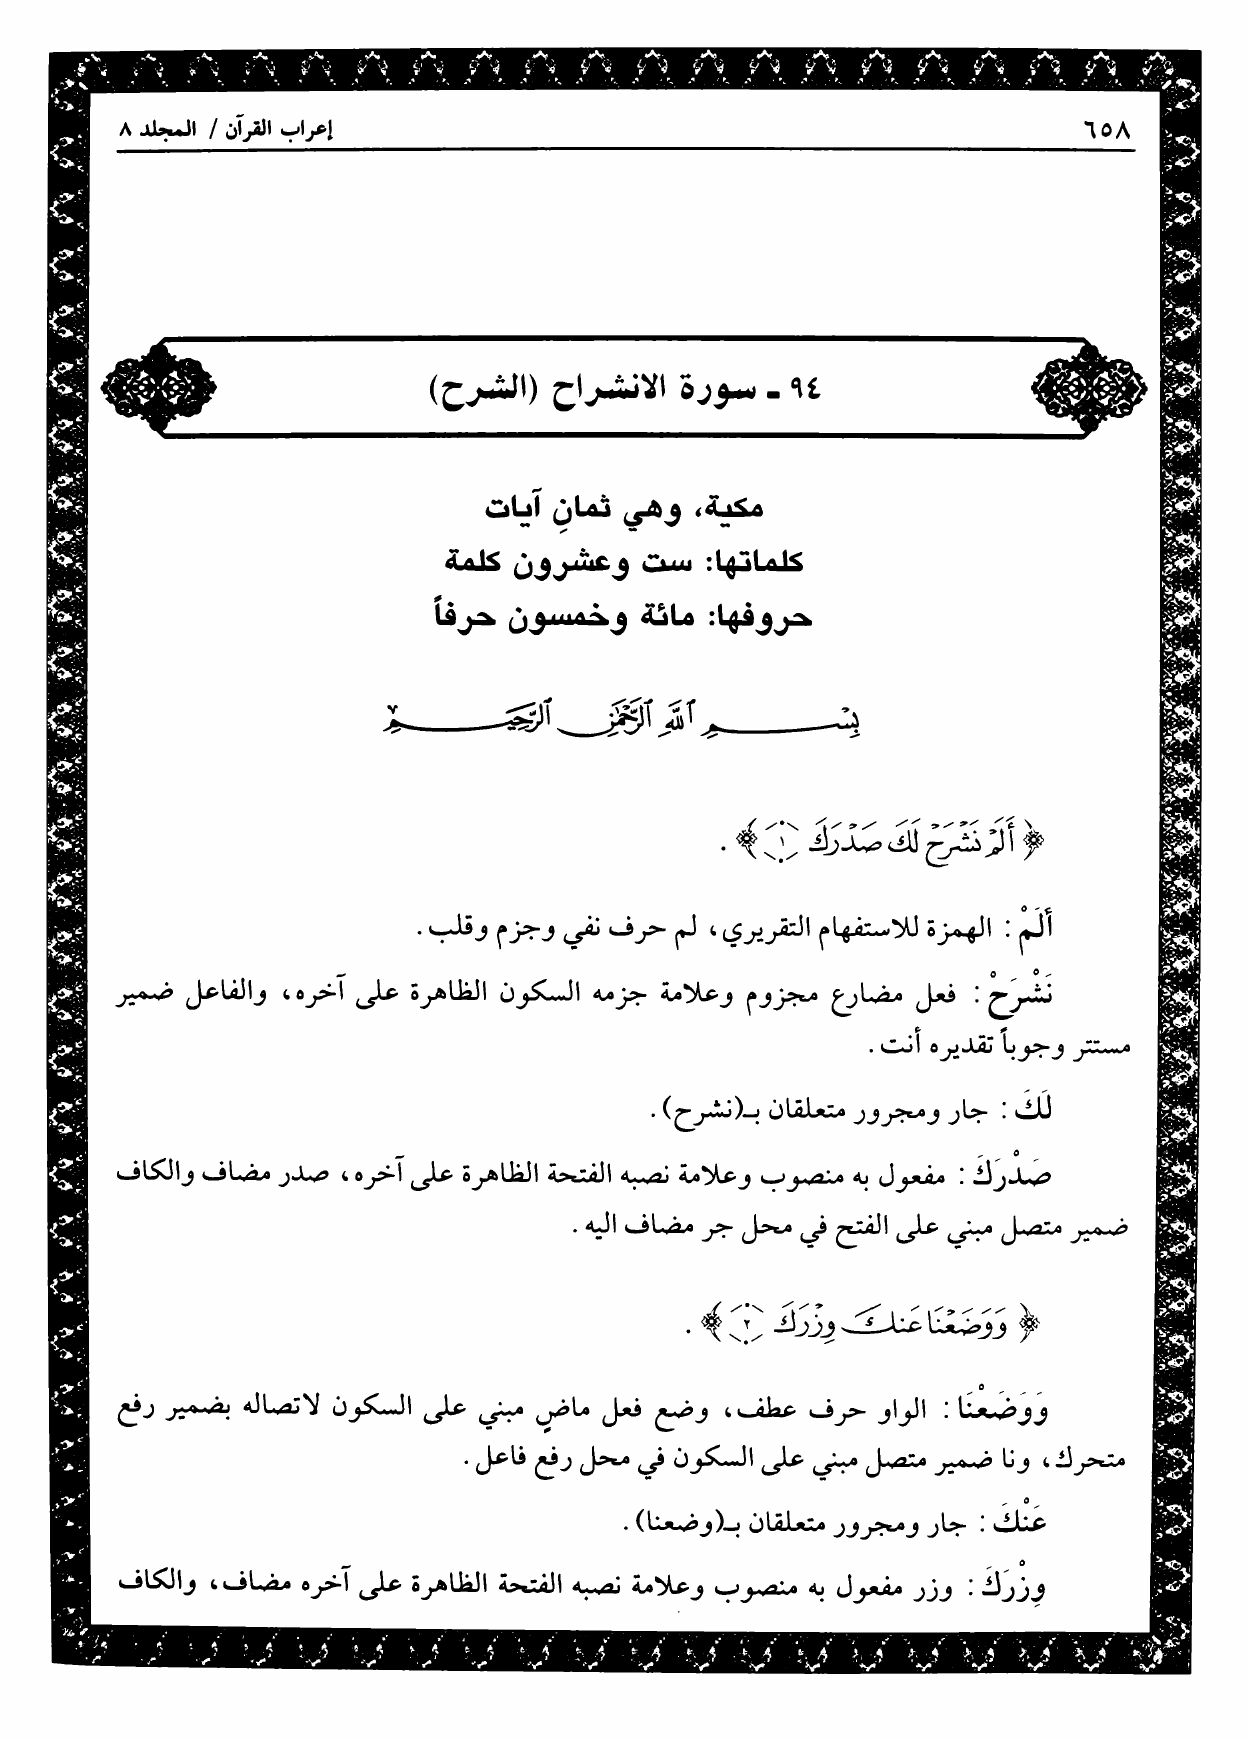 ٦٥٨
إعراب القرآن / المجلد ٨
٩٤ ـ سورة الانشراح (الشرح)
مكية، وهي ثمانِ آيات
كلماتها: ست وعشرون كلمة
حروفها: مائة وخمسون حرفاً
بِسْمِ ٱللَّهِ ٱلرَّحْمَٰنِ ٱلرَّحِيمِ
﴿ أَلَمْ نَشْرَحْ لَكَ صَدْرَكَ ١ ﴾ .
أَلَمْ : الهمزة للاستفهام التقريري، لم حرف نفي وجزم وقلب .
نَشْرَحْ : فعل مضارع مجزوم وعلامة جزمه السكون الظاهرة على آخره، والفاعل ضمير
مستتر وجوباً تقديره أنت .
لَكَ : جار ومجرور متعلقان بـ(نشرح) .
صَدْرَكَ : مفعول به منصوب وعلامة نصبه الفتحة الظاهرة على آخره، صدر مضاف والكاف
ضمير متصل مبني على الفتح في محل جر مضاف اليه .
﴿ وَوَضَعْنَا عَنكَ وِزْرَكَ ٢ ﴾ .
وَوَضَعْنَا : الواو حرف عطف، وضع فعل ماضٍ مبني على السكون لاتصاله بضمير رفع
متحرك، ونا ضمير متصل مبني على السكون في محل رفع فاعل .
عَنْكَ : جار ومجرور متعلقان بـ(وضعنا) .
وِزْرَكَ : وزر مفعول به منصوب وعلامة نصبه الفتحة الظاهرة على آخره مضاف، والكاف